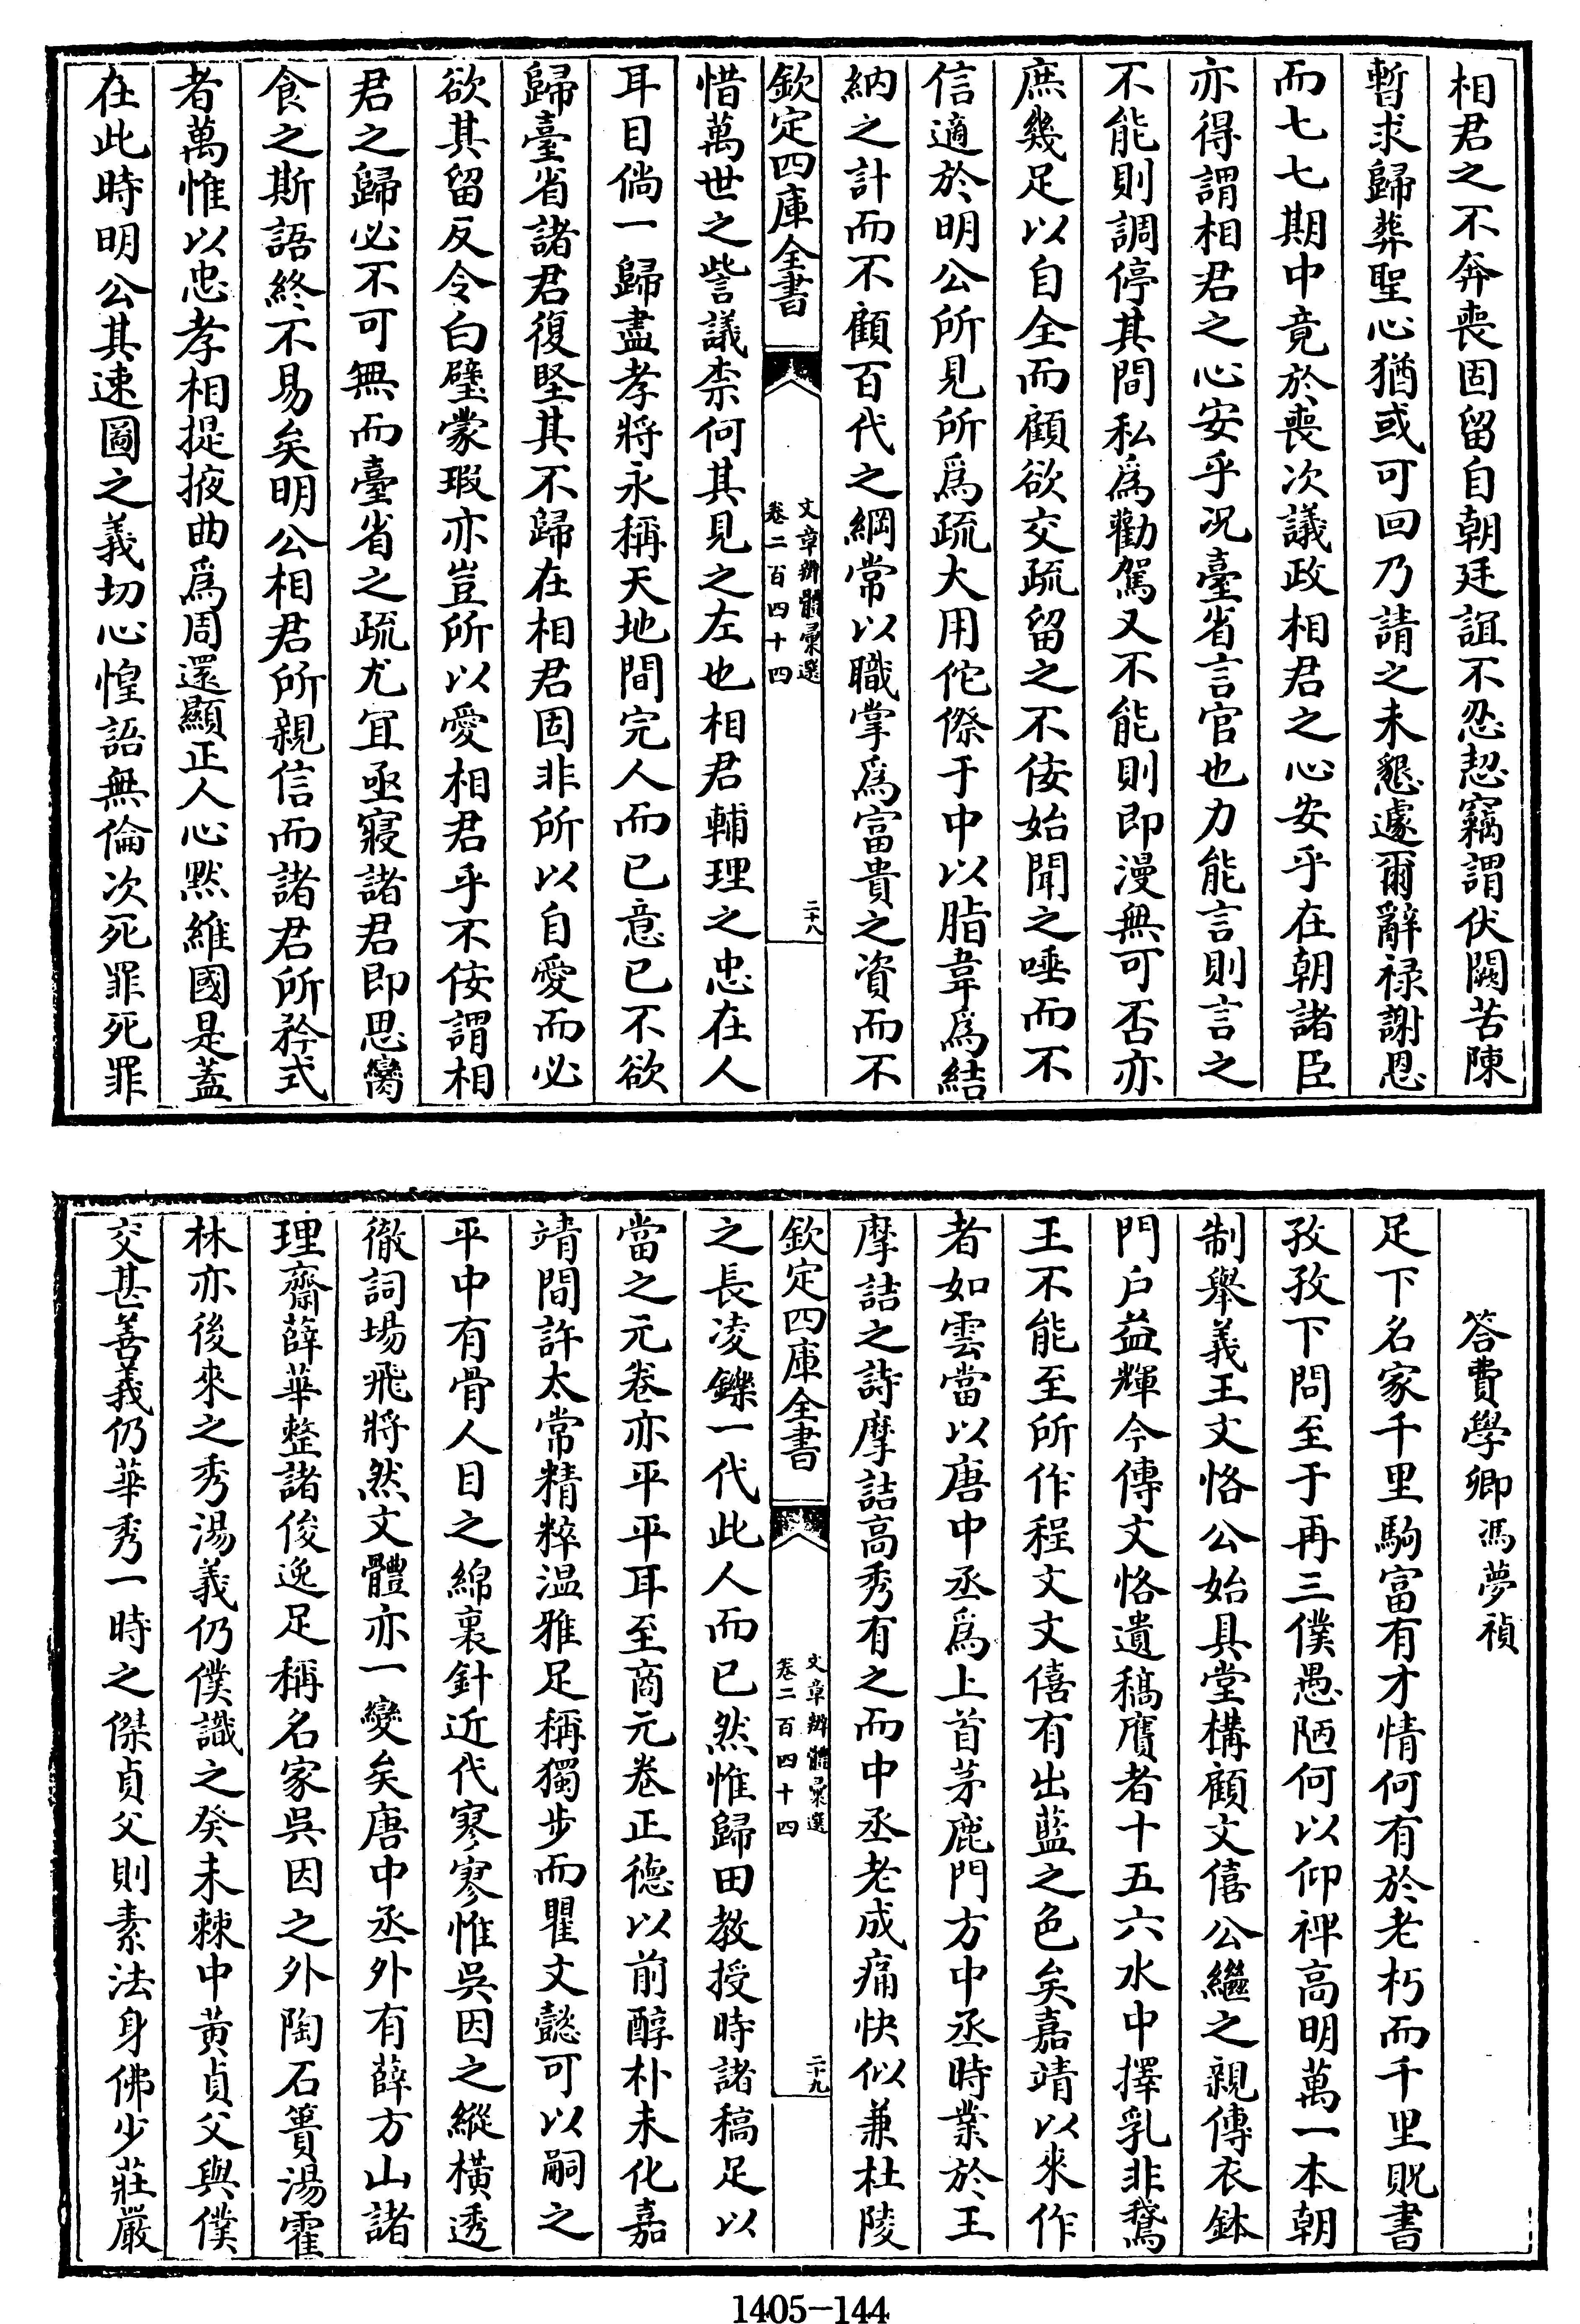 相君之不奔喪固留自朝廷誼不忍恝竊謂伏闕苦陳
暫求歸葬聖心猶或可回乃請之未懇遽爾辭祿謝恩
而七七期中竟於喪次議政相君之心安乎在朝諸臣
亦得謂相君之心安乎况臺省言官也力能言則言之
不能則調停其間私為勸駕又不能則即漫無可否亦
庶幾足以自全而顧欲交疏留之不佞始聞之唾而不
信適於明公所見所為疏大用佗傺于中以脂韋為結
納之計而不顧百代之綱常以職掌為富貴之資而不
欽定四庫全書
文章辨體彙選
卷二百四十四
二十八
惜萬世之訾議柰何其見之左也相君輔理之忠在人
耳目倘一歸盡孝將永稱天地間完人而已意已不欲
歸臺省諸君復堅其不歸在相君固非所以自愛而必
欲其留反令白璧蒙瑕亦豈所以愛相君乎不佞謂相
君之歸必不可無而臺省之疏尤宜亟寢諸君即思臠
食之斯語終不易矣明公相君所親信而諸君所矜式
者萬惟以忠孝相提掖曲為周還顯正人心黙維國是蓋
在此時明公其速圖之義切心惶語無倫次死罪死罪
答費學卿馮夢禎
足下名家千里駒富有才情何有於老朽而千里貺書
孜孜下問至于再三僕愚陋何以仰裨高明萬一本朝
制舉義王文恪公始具堂構顧文僖公繼之親傳衣鉢
門戶益輝今傳文恪遺稿贗者十五六水中擇乳非鵞
王不能至所作程文文僖有出藍之色矣嘉靖以來作
者如雲當以唐中丞為上首茅鹿門方中丞時業於王
摩詰之詩摩詰高秀有之而中丞老成痛快似兼杜陵
欽定四庫全書
文章辨體彙選
卷二百四十四
二十九
之長凌鑠一代此人而已然惟歸田教授時諸稿足以
當之元卷亦平平耳至商元卷正德以前醇朴未化嘉
靖間許太常精粹温雅足稱獨步而瞿文懿可以嗣之
平中有骨人目之綿裏針近代寥寥惟吳因之縱橫透
徹詞場飛將然文體亦一變矣唐中丞外有薛方山諸
理齋薛華整諸俊逸足稱名家吳因之外陶石簣湯霍
林亦後來之秀湯義仍僕識之癸未棘中黄貞父與僕
交甚善義仍華秀一時之傑貞父則素法身佛少莊嚴
1405-144